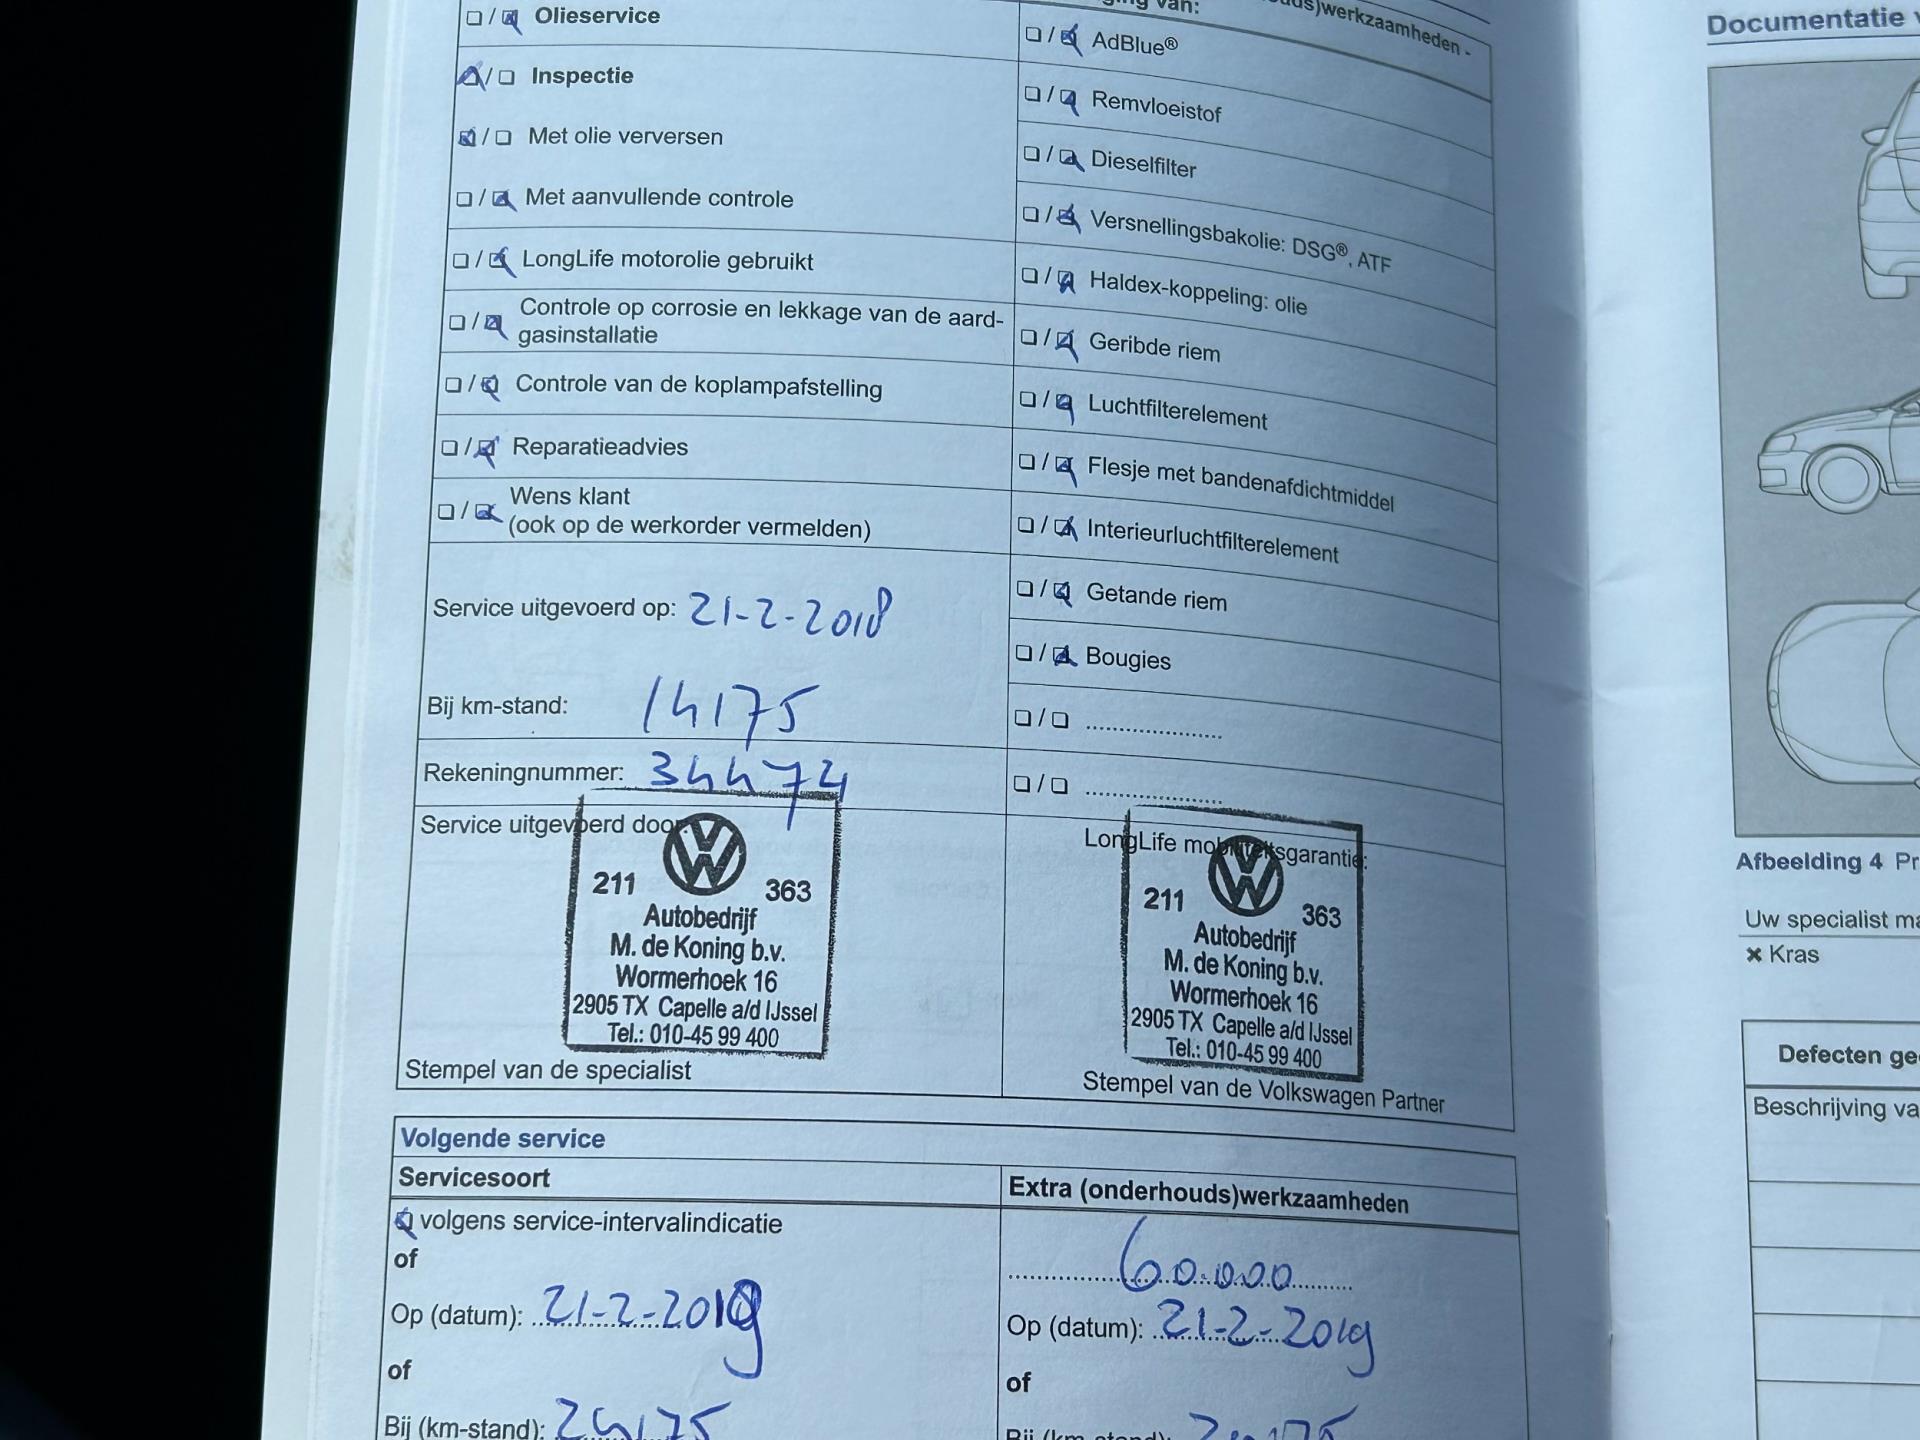 ging van:
(onderhouds)werkzaamheden -
❏ / ❏ Olieservice
❏ / ❏ Inspectie
❏ / ❏ Met olie verversen
❏ / ❏ Met aanvullende controle
❏ / ❏ LongLife motorolie gebruikt
❏ / ❏ Controle op corrosie en lekkage van de aard-
gasinstallatie
❏ / ❏ Controle van de koplampafstelling
❏ / ❏ Reparatieadvies
❏ / ❏ Wens klant
(ook op de werkorder vermelden)
Service uitgevoerd op: 21-2-2018
Bij km-stand: 14175
Rekeningnummer: 34474
Service uitgevoerd door
211 363
Autobedrijf
M. de Koning b.v.
Wormerhoek 16
2905 TX Capelle a/d IJssel
Tel.: 010-45 99 400
Stempel van de specialist
❏ / ❏ AdBlue®
❏ / ❏ Remvloeistof
❏ / ❏ Dieselfilter
❏ / ❏ Versnellingsbakolie: DSG®, ATF
❏ / ❏ Haldex-koppeling: olie
❏ / ❏ Geribde riem
❏ / ❏ Luchtfilterelement
❏ / ❏ Flesje met bandenafdichtmiddel
❏ / ❏ Interieurluchtfilterelement
❏ / ❏ Getande riem
❏ / ❏ Bougies
❏ / ❏ ......................
❏ / ❏ ......................
LongLife mobiliteitsgarantie:
211 363
Autobedrijf
M. de Koning b.v.
Wormerhoek 16
2905 TX Capelle a/d IJssel
Tel.: 010-45 99 400
Stempel van de Volkswagen Partner
Volgende service
Servicesoort
❏ volgens service-intervalindicatie
of
Op (datum): 21-2-2019
of
Bij (km-stand): 29175
Extra (onderhouds)werkzaamheden
60.000
Op (datum): 21-2-2019
of
Bij (km-stand):
Documentatie v
Afbeelding 4 Pr
Uw specialist ma
✖ Kras
Defecten ge
Beschrijving va